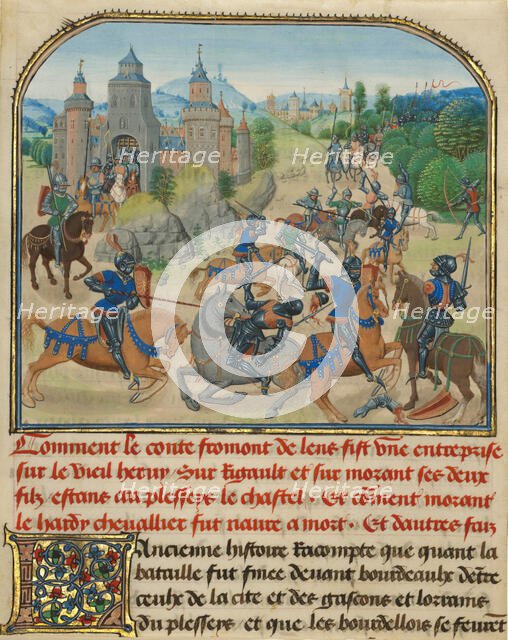 Heritage Heritage
Heritage Heritage
Heritage Heritage
Comment le conte fromont de lens fist vne entreprise
sur le vieil heruy sur Rigault et sur morant ses deux
filz estans au plesseys le chastel · Et coment morant
le hardy cheuallier fut naure a mort · Et dautres faiz
L Ancienne histoire Racompte que quant la
bataille fut finee deuant bourdeaulx dentre
ceulx de la cite et des gascons et lorrains
du plesseys et que les bourdellois se feurent